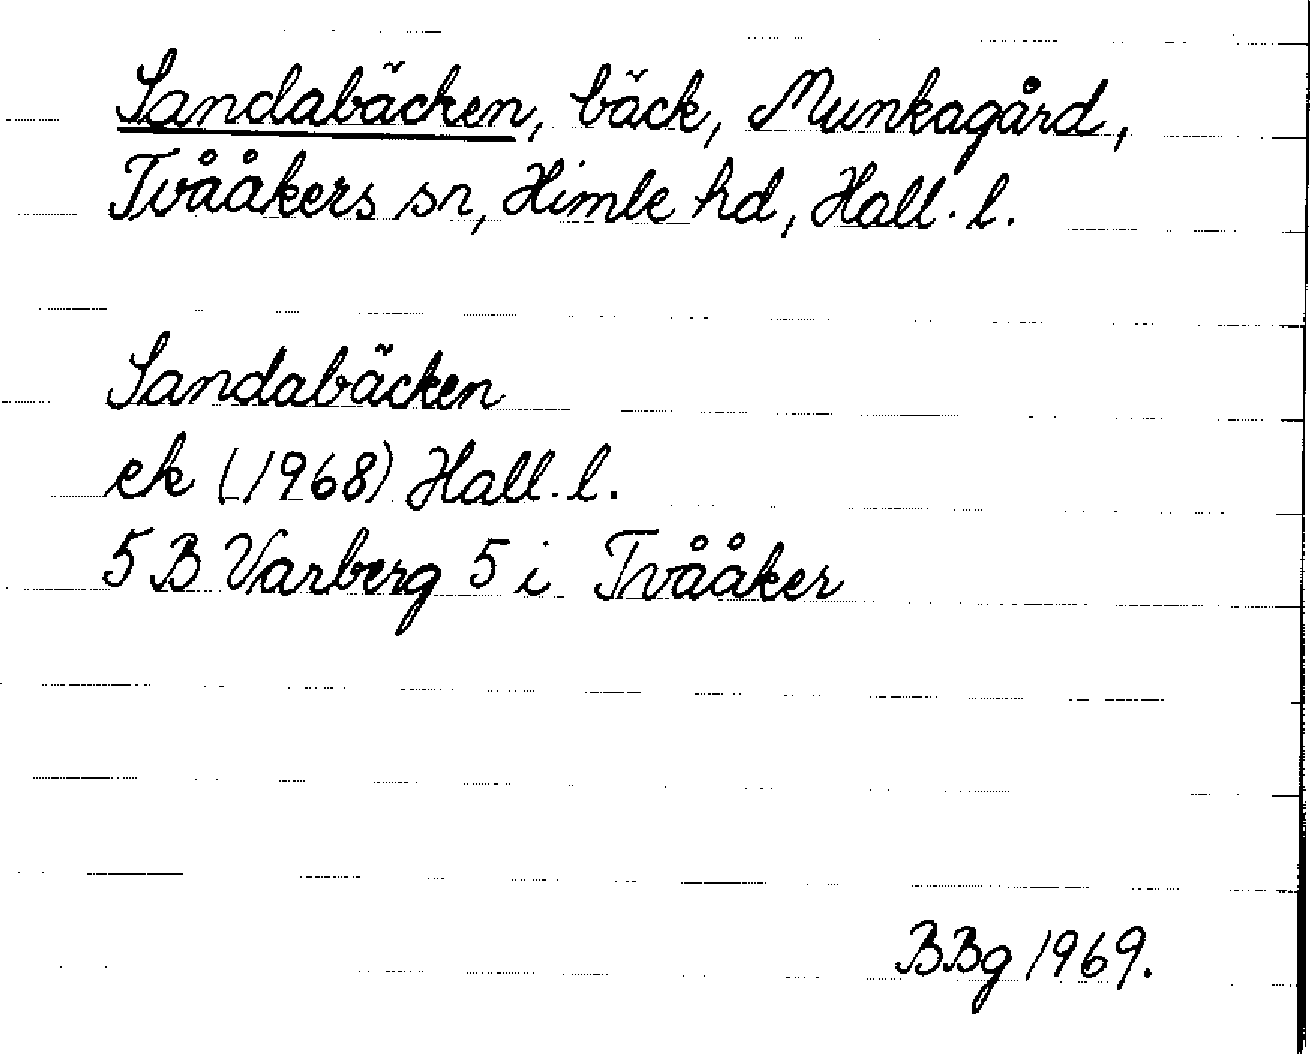 Sandabäcken, bäck, Munkagård,
Tvååkers sn, Himle hd, Hall. l.
Sandabäcken
ek (1968) Hall. l.
5 B Varberg 5 i Tvååker
BBg 1969.